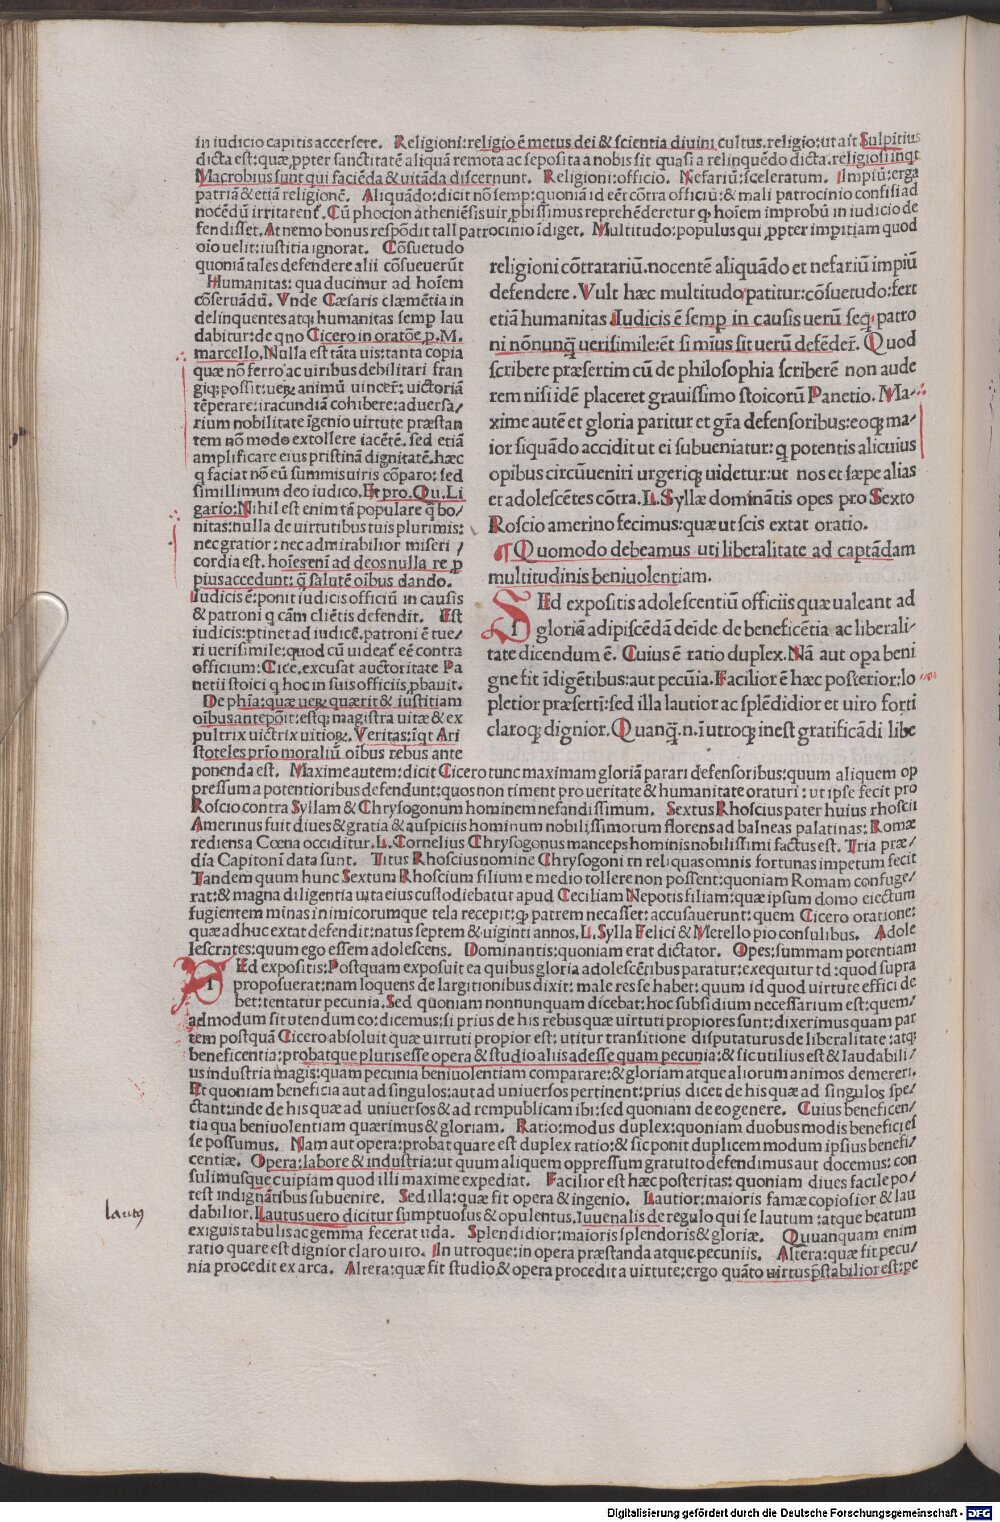 in iudicio capitis accersere. Religioni:religio ē metus dei & scientia diuini cultus.religio:ut ait Sulpitius
dicta est:quæ ꝓpter sanctitatē aliquā remota ac seposita a nobis sit quasi a relinquēdo dicta.religiosi inqt
Macrobius sunt qui faciēda & uitāda discernunt. Religioni:officio. Nefariū:sceleratum. Impiū:erga
patriā & etiā religionē. Aliquādo:dicit nō semp:quoniā id eēt cōtra officiū:& mali patrocinio confisi ad
nocēdū irritarent. Cū phocion atheniēsis uir ꝓbissimus reprehēderetur ꝙ hoīem improbū in iudicio de
fendisset. At nemo bonus respōdit tali patrocinio īdiget. Multitudo:populus qui ꝓpter imperitiam quod
oīo uelit:iustitia ignorat. Cōsuetudo
quoniā tales defendere alii cōsueuerūt
Humanitas: qua ducimur ad hoīem
cōseruādū. Vnde Cæsaris clæmētia in
delinquentes atqꝫ humanitas semp lau
dabitur:de qno Cicero in oratōe ꝓ. M.
marcello. Nulla est tāta uis:tanta copia
quæ nō ferro ac uiribus debilitari fran
giqꝫ possit:uerꝝ animū uincere: uictoriā
tēperare:iracundiā cohibere:aduersa/
rium nobilitate īgenio uirtute præstan
tem nō modo extollere iacētē. sed etiā
amplificare eius pristinā dignitatē.hæc
q faciat nō eū summis uiris cōparo: sed
simillimum deo iudico. Et pro. Qu. Li
gario:Nihil est enim tā populare q̄ bo/
nitas:nulla de uirtutibus tuis plurimis:
nec gratior: nec admirabilior miseri /
cordia est. hoīes eni ad deos nulla re p
pius accedunt: q̄ salutē oībus dando.
Iudicis ē:ponit iudicis officiū in causis
& patroni q cām cliētis defendit. Est
iudicis:ptinet ad iudicē.patroni ē tue/
ri uerisimile:quod cū uideat eē contra
officium:Cice.excusat auctoritate Pa
netii stoici q hoc in suis officiis ꝓbauit.
De phīa:quæ uerꝝ quærit & iustitiam
oībus antepōit:estqꝫ magistra uitæ & ex
pultrix uictrix uitiorꝝ. Veritas:īqt Ari
stoteles prīo moraliū oībus rebus ante
religioni cōtrarariū.nocentē aliquādo et nefariū impiū
defendere. Vult hæc multitudo patitur:cōsuetudo:fert
etiā humanitas. Iudicis ē semp in causis uerū seq. patro
ni nōnunq̄ uerisimile:ēt si mīus sit uerū defēdere. Quod
scribere præsertim cū de philosophia scriberē non aude
rem nisi idē placeret grauissimo stoicorū Panetio. Ma/
xime autē et gloria paritur et grā defensoribus:eoqꝫ ma/
ior siquādo accidit ut ei subueniatur: q potentis alicuius
opibus circūueniri urgeriqꝫ uidetur:ut nos et sæpe alias
et adolescētes cōtra. L. Syllæ dominātis opes pro Sexto
Roscio amerino fecimus:quæ ut scis extat oratio.
¶Quomodo debeamus uti liberalitate ad captādam
multitudinis beniuolentiam.
SEd expositis adolescentiū officiis quæ ualeant ad
gloriā adipiscēdā deīde de beneficētia ac liberali/
tate dicendum ē. Cuius ē ratio duplex. Nā aut opa beni
gne fit īdigētibus:aut pecūia. Facilior ē hæc posterior:lo
pletior præserti:sed illa lautior ac splēdidior et uiro forti
claroqꝫ dignior. Quanq̄.n.ī utroqꝫ inest gratificādi libe
ponenda est. Maxime autem:dicit Cicero tunc maximam gloriā parari defensoribus:quum aliquem op
pressum a potentioribus defendunt:quos non timent pro ueritate & humanitate oraturi: ut ipse fecit pro
Roscio contra Syllam & Chrysogonum hominem nefandissimum. Sextus Rhoscius pater huius rhoscii
Amerinus fuit diues & gratia & auspiciis hominum nobilissimorum florens ad balneas palatinas: Romæ
rediens a Cœna occiditur. L. Cornelius Chrysogonus manceps hominis nobilissimi factus est. Tria præ/
dia Capitoni data sunt. Titus Rhoscius nomine Chrysogoni in reliquas omnis fortunas impetum fecit
Tandem quum hunc Sextum Rhoscium filium e medio tollere non possent:quoniam Romam confuge/
rat:& magna diligentia uita eius custodiebatur apud Ceciliam Nepotis filiam:quæ ipsum domo eiectum
fugientem minas inimicorumque tela recepit:ꝙ patrem necasset: accusauerunt: quem Cicero oratione:
quæ adhuc extat defendit:natus septem & uiginti annos. L. Sylla Felici & Metello pio consulibus. Adole
lescentes:quum ego essem adolescens. Dominantis:quoniam erat dictator. Opes:summam potentiam
SEd expositis:Postquam exposuit ea quibus gloria adolescētibus paratur:exequitur id:quod supra
proposuerat:nam loquens de largitionibus dixit: male res se habet: quum id quod uirtute effici de
bet:tentatur pecunia. Sed quoniam nonnunquam dicebat:hoc subsidium necessarium est:quem/
admodum sit utendum eo:dicemus:si prius de his rebus quæ uirtuti propiores sunt:dixerimus quam par
tem postquā Cicero absoluit quæ uirtuti propior est: utitur transitione disputaturus de liberalitate :atqꝫ
beneficentia:probatque pluris esse opera & studio aliis adesse quam pecunia:& sic utilius est & laudabili/
us industria magis:quam pecunia beniuolentiam comparare:& gloriam atque aliorum animos demereri.
Et quoniam beneficia aut ad singulos:aut ad uniuersos pertinent:prius dicet de his quæ ad singulos spe/
ctant:inde de his quæ ad uniuersos & ad rempublicam ibi:sed quoniam de eo genere. Cuius beneficen/
tia qua beniuolentiam quærimus & gloriam. Ratio:modus duplex:quoniam duobus modis benefici es
se possumus. Nam aut opera:probat quare est duplex ratio:& sic ponit duplicem modum ipsius benefi/
centiæ. Opera:labore & industria:ut quum aliquem oppressum gratuito defendimus aut docemus: con
sulimusque cuipiam quod illi maxime expediat. Facilior est hæc posteritas: quoniam diues facile po/
test indignātibus subuenire. Sed illa:quæ fit opera & ingenio. Lautior:maioris famæ copiosior & lau
dabilior. Lautus uero dicitur sumptuosus & opulentus. Iuuenalis de regulo qui se lautum :atque beatum
exiguis tabulis ac gemma fecerat uda. Splendidior:maioris splendoris & gloriæ. Quuanquam enim
ratio quare est dignior claro uiro. In utroque:in opera præstanda atque pecuniis. Altera:quæ fit pecu/
nia procedit ex arca. Altera:quæ fit studio & opera procedit a uirtute:ergo quāto uirtus p̄stabilior est:pe
lautꝰ
Digitalisierung gefördert durch die Deutsche Forschungsgemeinschaft - DFG